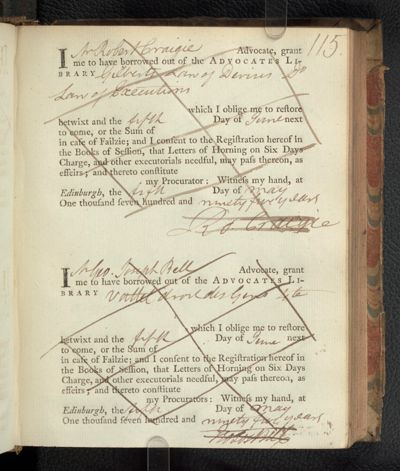 115.
I Mr Robert Craigie Advocate, grant
me to have borrowed out of the ADVOCATES LI-
BRARY Gilberts Law of Devises Do
Law of Executions
which I oblige me to reſtore
betwixt and the fifth Day of June next
to come, or the Sum of
in caſe of Failzie; and I conſent to the Regiſtration hereof in
the Books of Seſſion, that Letters of Horning on Six Days
Charge, and other executorials needful, may paſs thereon, as
effeirs; and thereto conſtitute
my Procurator: Witneſs my hand, at
Edinburgh, the fifth Day of May
One thouſand ſeven hundred and ninety five years
Ro Craigie
I Mr Geo. Joseph Bell Advocate, grant
me to have borrowed out of the ADVOCATES LI-
BRARY Vattel droit des Gens 4to
which I oblige me to reſtore
betwixt and the fifth Day of June next
to come, or the Sum of
in caſe of Failzie; and I conſent to the Regiſtration hereof in
the Books of Seſſion, that Letters of Horning on Six Days
Charge, and other executorials needful, may paſs thereon, as
effeirs; and thereto conſtitute
my Procurators: Witneſs my hand, at
Edinburgh, the fifth Day of May
One thouſand ſeven hundred and ninety five years